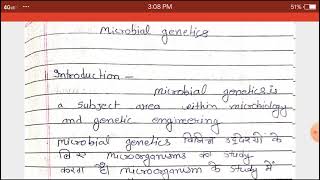 4G
3:08 PM
Microbial genetics
Introduction -
microbial genetics is
a subject area within microbiology
and genetic engineering
microbial genetics विभिन्न उद्देश्यों के
लिए microorganisms का study
करता है microorganism के study में